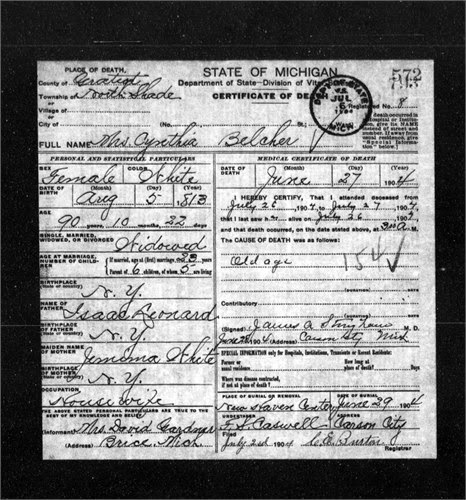 PLACE OF DEATH,
STATE OF MICHIGAN
572
County of Gratiot
Department of State—Division of Vital
Township of North Shade
CERTIFICATE OF DEA
DEPT. OF STATE
JUL 6 1904
MICH.
Village of
or
City of
Registered No. 8
FULL NAME Mrs. Cynthia Belcher
PERSONAL AND STATISTICAL PARTICULARS
MEDICAL CERTIFICATE OF DEATH
SEX Female
COLOR White
DATE OF DEATH June 27 1904
(Month) (Day) (Year)
DATE OF BIRTH Aug 5 1813
(Month) (Day) (Year)
I HEREBY CERTIFY, That I attended deceased from
July 26 1904, to July 27 1904
that I last saw h alive on July 26 1904
and that death occurred, on the date stated above, at 3 a M.
AGE 90 years 10 months 22 days
THE CAUSE OF DEATH was as follows:
Old age
154
SINGLE, MARRIED, WIDOWED, OR DIVORCED Widowed
AGE AT MARRIAGE, NUMBER OF CHILDREN
If married, age at (first) marriage, years
Parent of 6 children, of whom 5 are living
BIRTHPLACE (State or country) N. Y.
Contributory
NAME OF FATHER Isaac Leonard
BIRTHPLACE OF FATHER (State or country) N. Y.
(Signed) James A. M. D.
1904 (Address) Carson City Mich
MAIDEN NAME OF MOTHER Jemima White
BIRTHPLACE OF MOTHER (State or country) N. Y.
SPECIAL INFORMATION only for Hospitals, Institutions, Transients or Recent Residents:
Former or usual residence
How long at place of death? Days
Where was disease contracted, if not at place of death?
OCCUPATION Housewife
THE ABOVE STATED PERSONAL PARTICULARS ARE TRUE TO THE BEST OF MY KNOWLEDGE AND BELIEF
(Informant) Mrs. David Gardner
(Address) Brice, Mich.
PLACE OF BURIAL OR REMOVAL New Haven Center
DATE OF BURIAL June 29 1904
F. S. Caswell Carson City
July 2nd 1904 C. E. Burton
Registrar